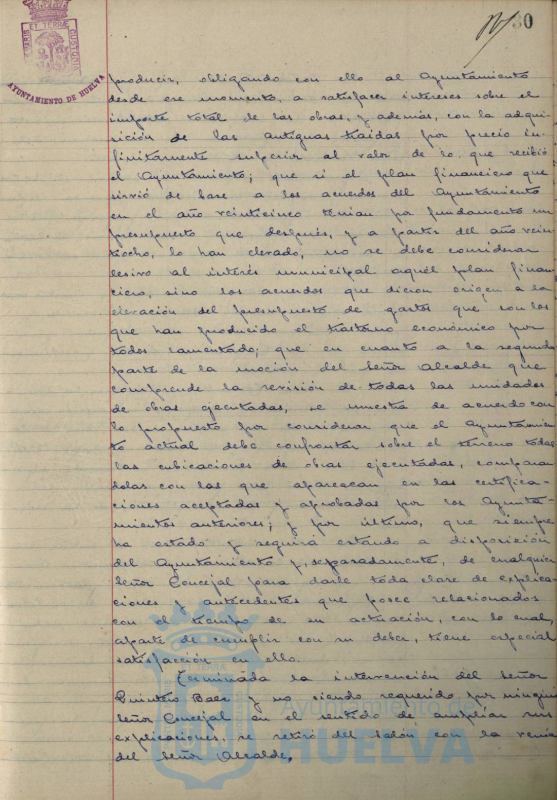 30
AYUNTAMIENTO DE HUELVA
producir, obligando con ello al Ayuntamiento
desde ese momento, a satisfacer intereses sobre el
importe total de las obras, y además, con la adqui-
sición de las antiguas traidas por precio in-
finitamente superior al valor de lo que recibió
el Ayuntamiento; que si el plan financiero que
sirvió de base a los acuerdos del Ayuntamiento
en el año veinticinco tenian por fundamento un
presupuesto que después, y a partir del año vein-
tiocho, lo han elevado, no se debe considerar
lesivo al interés municipal aquél plan finan-
ciero, sino los acuerdos que dieron origen a la
elevación del presupuesto de gastos que son los
que han producido el trastorno económico por
todos lamentado; que en cuanto a la segunda
parte de la moción del Señor Alcalde que
comprende la revisión de todas las unidades
de obras ejecutadas, se muestra de acuerdo con
lo propuesto por considerar que el Ayuntamien-
to actual debe confrontar sobre el terreno todas
las cubicaciones de obras ejecutadas, comparan
dolas con las que aparezcan en las certifica-
ciones aceptadas y aprobadas por los Ayunta-
mientos anteriores; y por último, que siempre
ha estado y seguirá estando a disposición
del Ayuntamiento y, separadamente, de cualquier
Señor Concejal para darle toda clase de explica-
ciones y antecedentes que posee relacionados
con el tiempo de su actuación, con lo cual,
aparte de cumplir con su deber, tiene especial
satisfacción en ello.
Terminada la intervención del Señor
Quintero Baez y no siendo requerido por ningun
Señor Concejal en el sentido de ampliar sus
explicaciones, se retiró del salón con la venia
del Señor Alcalde.
Ayuntamiento de
HUELVA